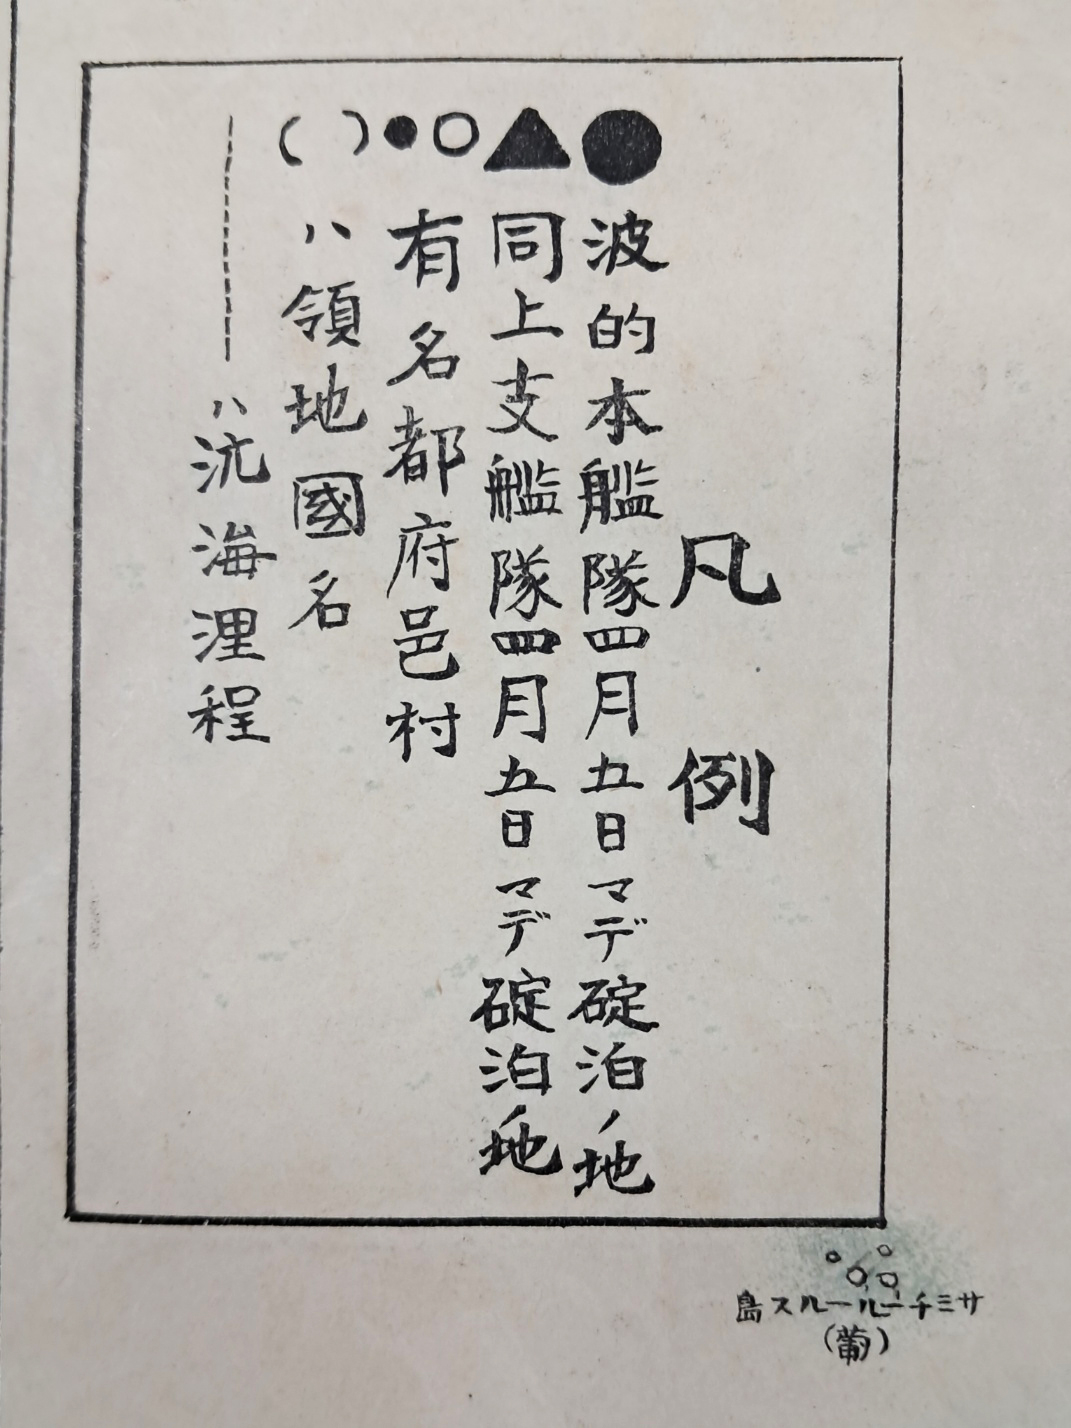 凡例
●波的本艦隊四月五日マデ碇泊ノ地
▲同上支艦隊四月五日マデ碇泊ノ地
○●有名都府邑村
( )ハ領地國名
ハ沆海浬程
サミチールールス島
(葡)